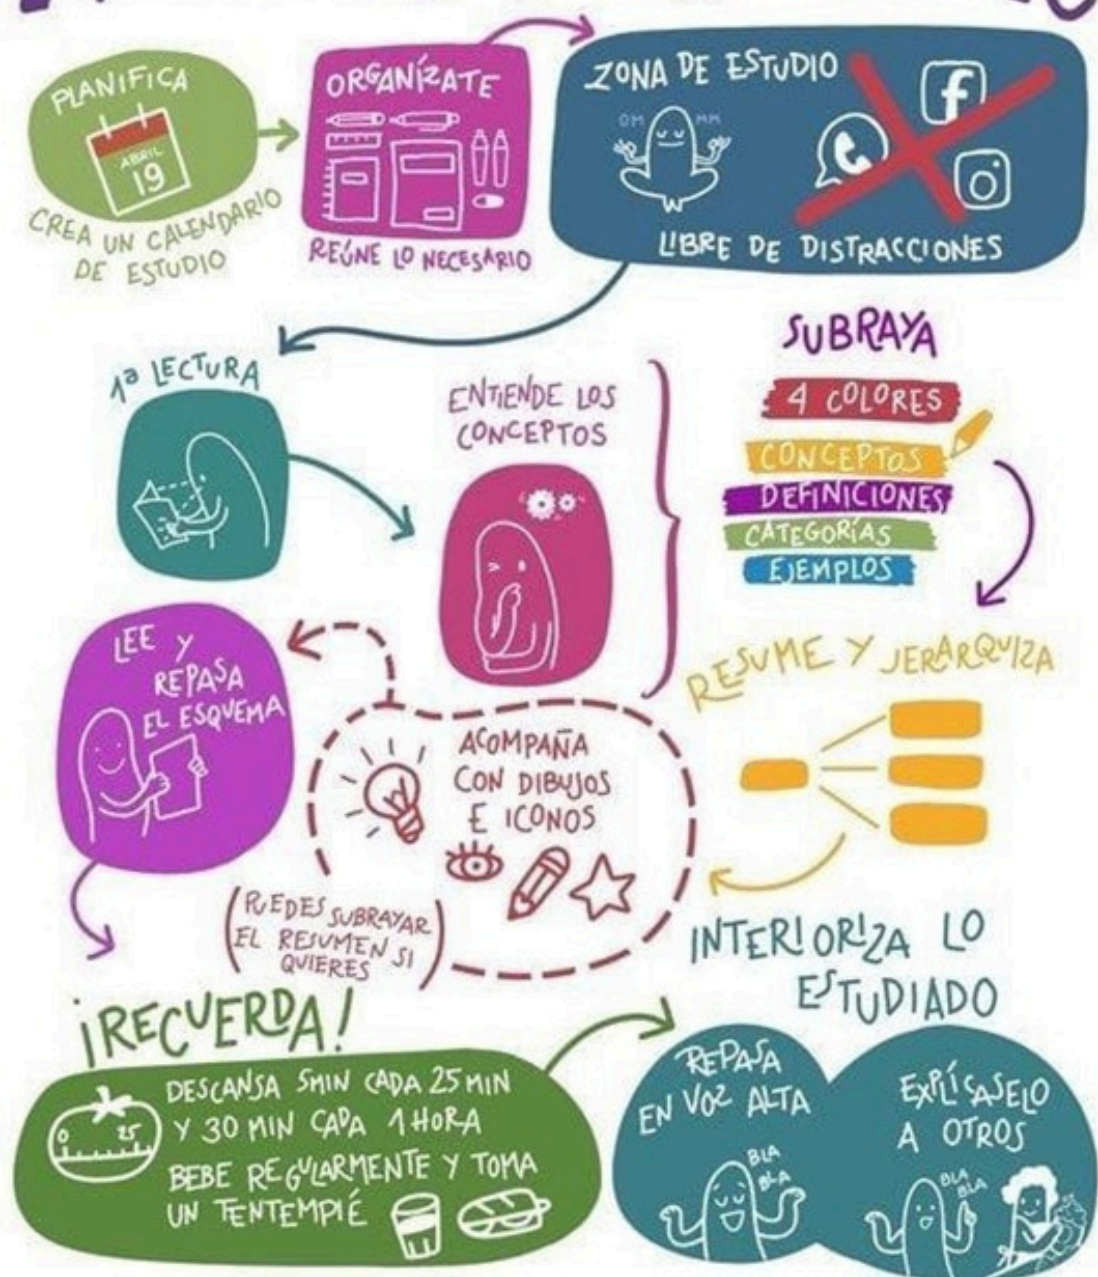 PLANIFICA
ABRIL
19
CREA UN CALENDARIO
DE ESTUDIO
ORGANÍZATE
REÚNE LO NECESARIO
ZONA DE ESTUDIO
OM MM
LIBRE DE DISTRACCIONES
1ª LECTURA
ENTIENDE LOS
CONCEPTOS
SUBRAYA
4 COLORES
CONCEPTOS
DEFINICIONES
CATEGORÍAS
EJEMPLOS
RESUME Y JERARQUIZA
ACOMPAÑA
CON DIBUJOS
E ICONOS
(PUEDES SUBRAYAR
EL RESUMEN SI
QUIERES)
LEE Y
REPASA
EL ESQUEMA
¡RECUERDA!
0 25
DESCANSA 5MIN CADA 25 MIN
Y 30 MIN CADA 1 HORA
BEBE REGULARMENTE Y TOMA
UN TENTEMPIÉ
INTERIORIZA LO
ESTUDIADO
REPASA
EN VOZ ALTA
BLA
BLA
EXPLÍCASELO
A OTROS
BLA
BLA